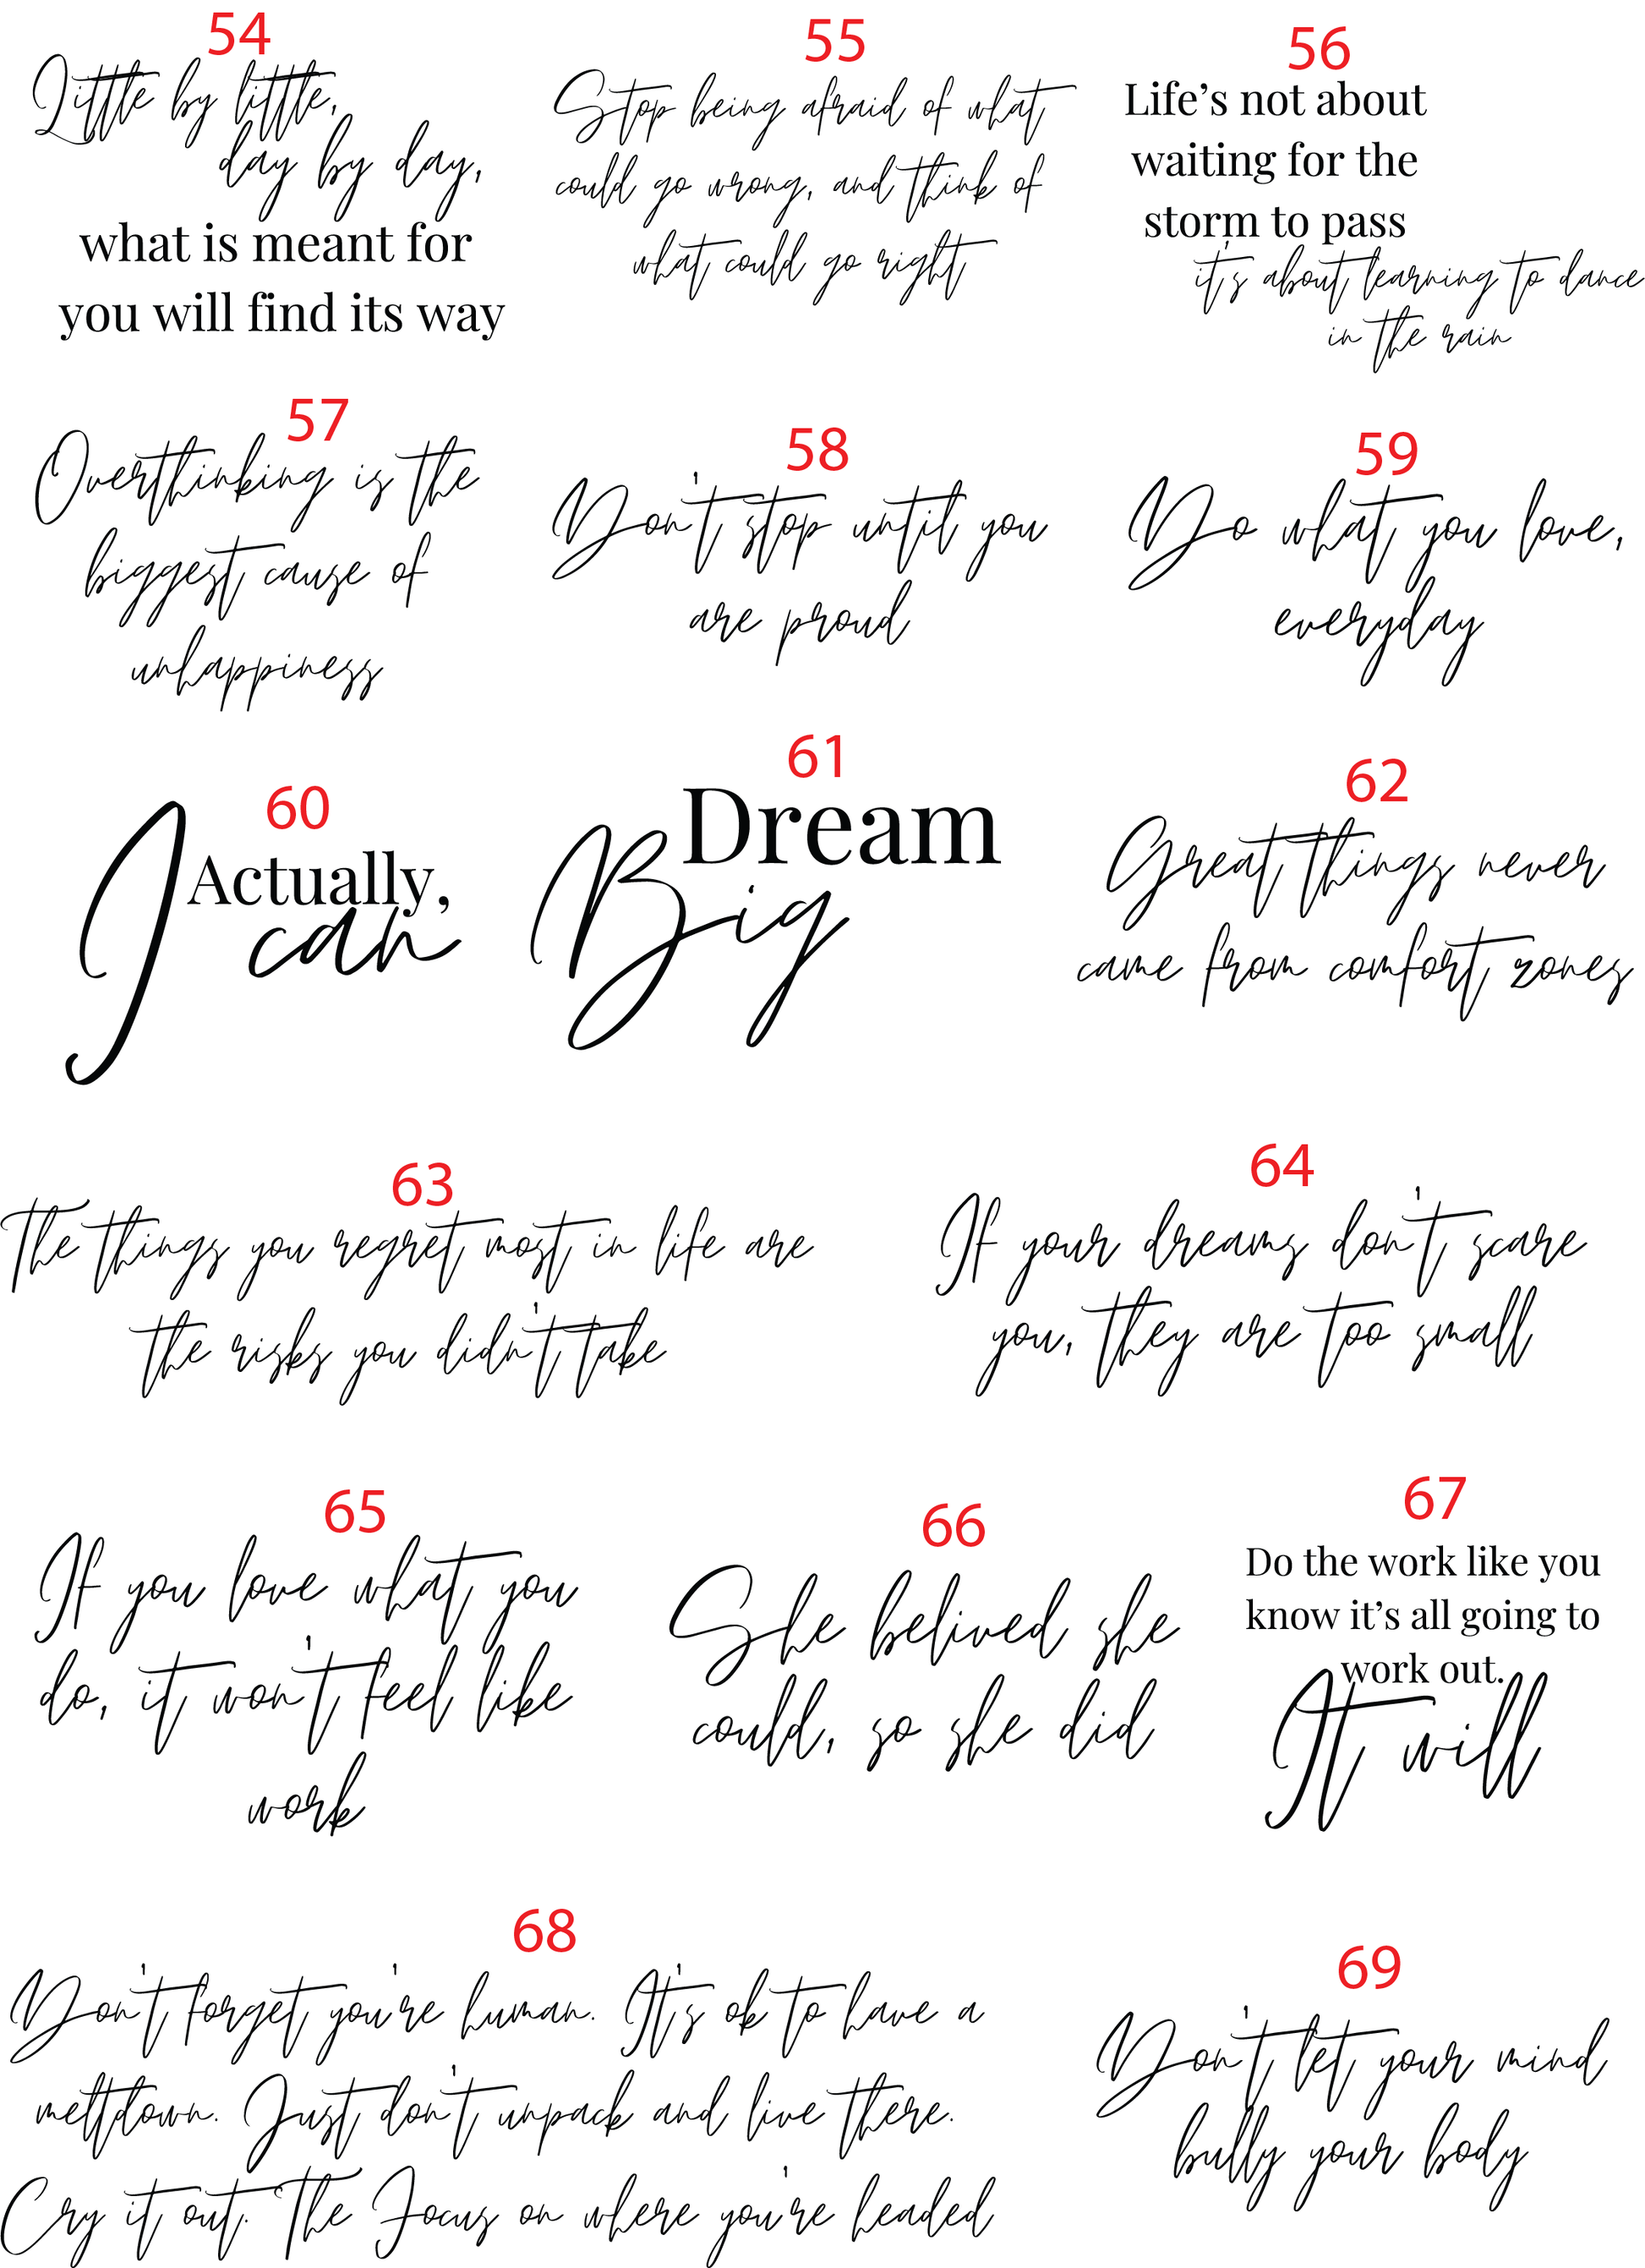 54
Little by little,
day by day,
what is meant for
you will find its way
55
Stop being afraid of what
could go wrong, and think of
what could go right
56
Life’s not about
waiting for the
storm to pass
it's about learning to dance
in the rain
57
Overthinking is the
biggest cause of
unhappiness
58
Don't stop until you
are proud
59
Do what you love,
everyday
60
Actually,
I can
61
Dream
Big
62
Great things never
came from comfort zones
63
The things you regret most in life are
the risks you didn't take
64
If your dreams don't scare
you, they are too small
65
If you love what you
do, it won't feel like
work
66
She belived she
could, so she did
67
Do the work like you
know it’s all going to
work out.
It will
68
Don't forget you're human. It's ok to have a
meltdown. Just don't unpack and live there.
Cry it out. The Focus on where you're headed
69
Don't let your mind
bully your body